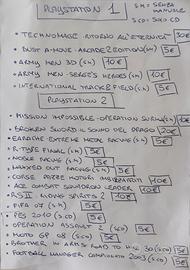 PLAYSTATION 1
S.M = SENZA MANUALE
S.CD = SOLO CD
• TECHNOMAGE RITORNO ALL'ETERNITÀ 30€
• BUST A MOVE ARCADE EDITION (SM) 5€
• ARMY MEN 3D (S.M) 10€
• ARMY MEN SERGE'S HEROES (S.M) 10€
• INTERNATIONAL TRACK & FIELD (S.M) 5€
PLAYSTATION 2
• MISSION IMPOSSIBLE - OPERATION SURMA (S.M) 10€
• BROKEN SWORD IL SONNO DEL DRAGO 20€
• CARTAGE EXTREME METAL RACING 5€
• R-TYPE FINAL (S.M) 5€
• NOBLE RACING (S.M) 5€
• WAXXED OUT RACING (S.M) 5€
• CORSE PAZZE MOTORI INGRANATI 10€
• ACE COMBAT SQUADRON LEADER 10€
• FIFA 07 (S.M) 5€
• PES 2010 (S.CD) 5€
• OPERATION ASSAULT 5€
• MOTO GP 08 (S.M) 5€
• BROTHER IN ARMS ROAD TO HILL 30 (S.CD) 5€
• FOOTBALL MANAGER CAMPIONATO 2003 (S.CD) 5€